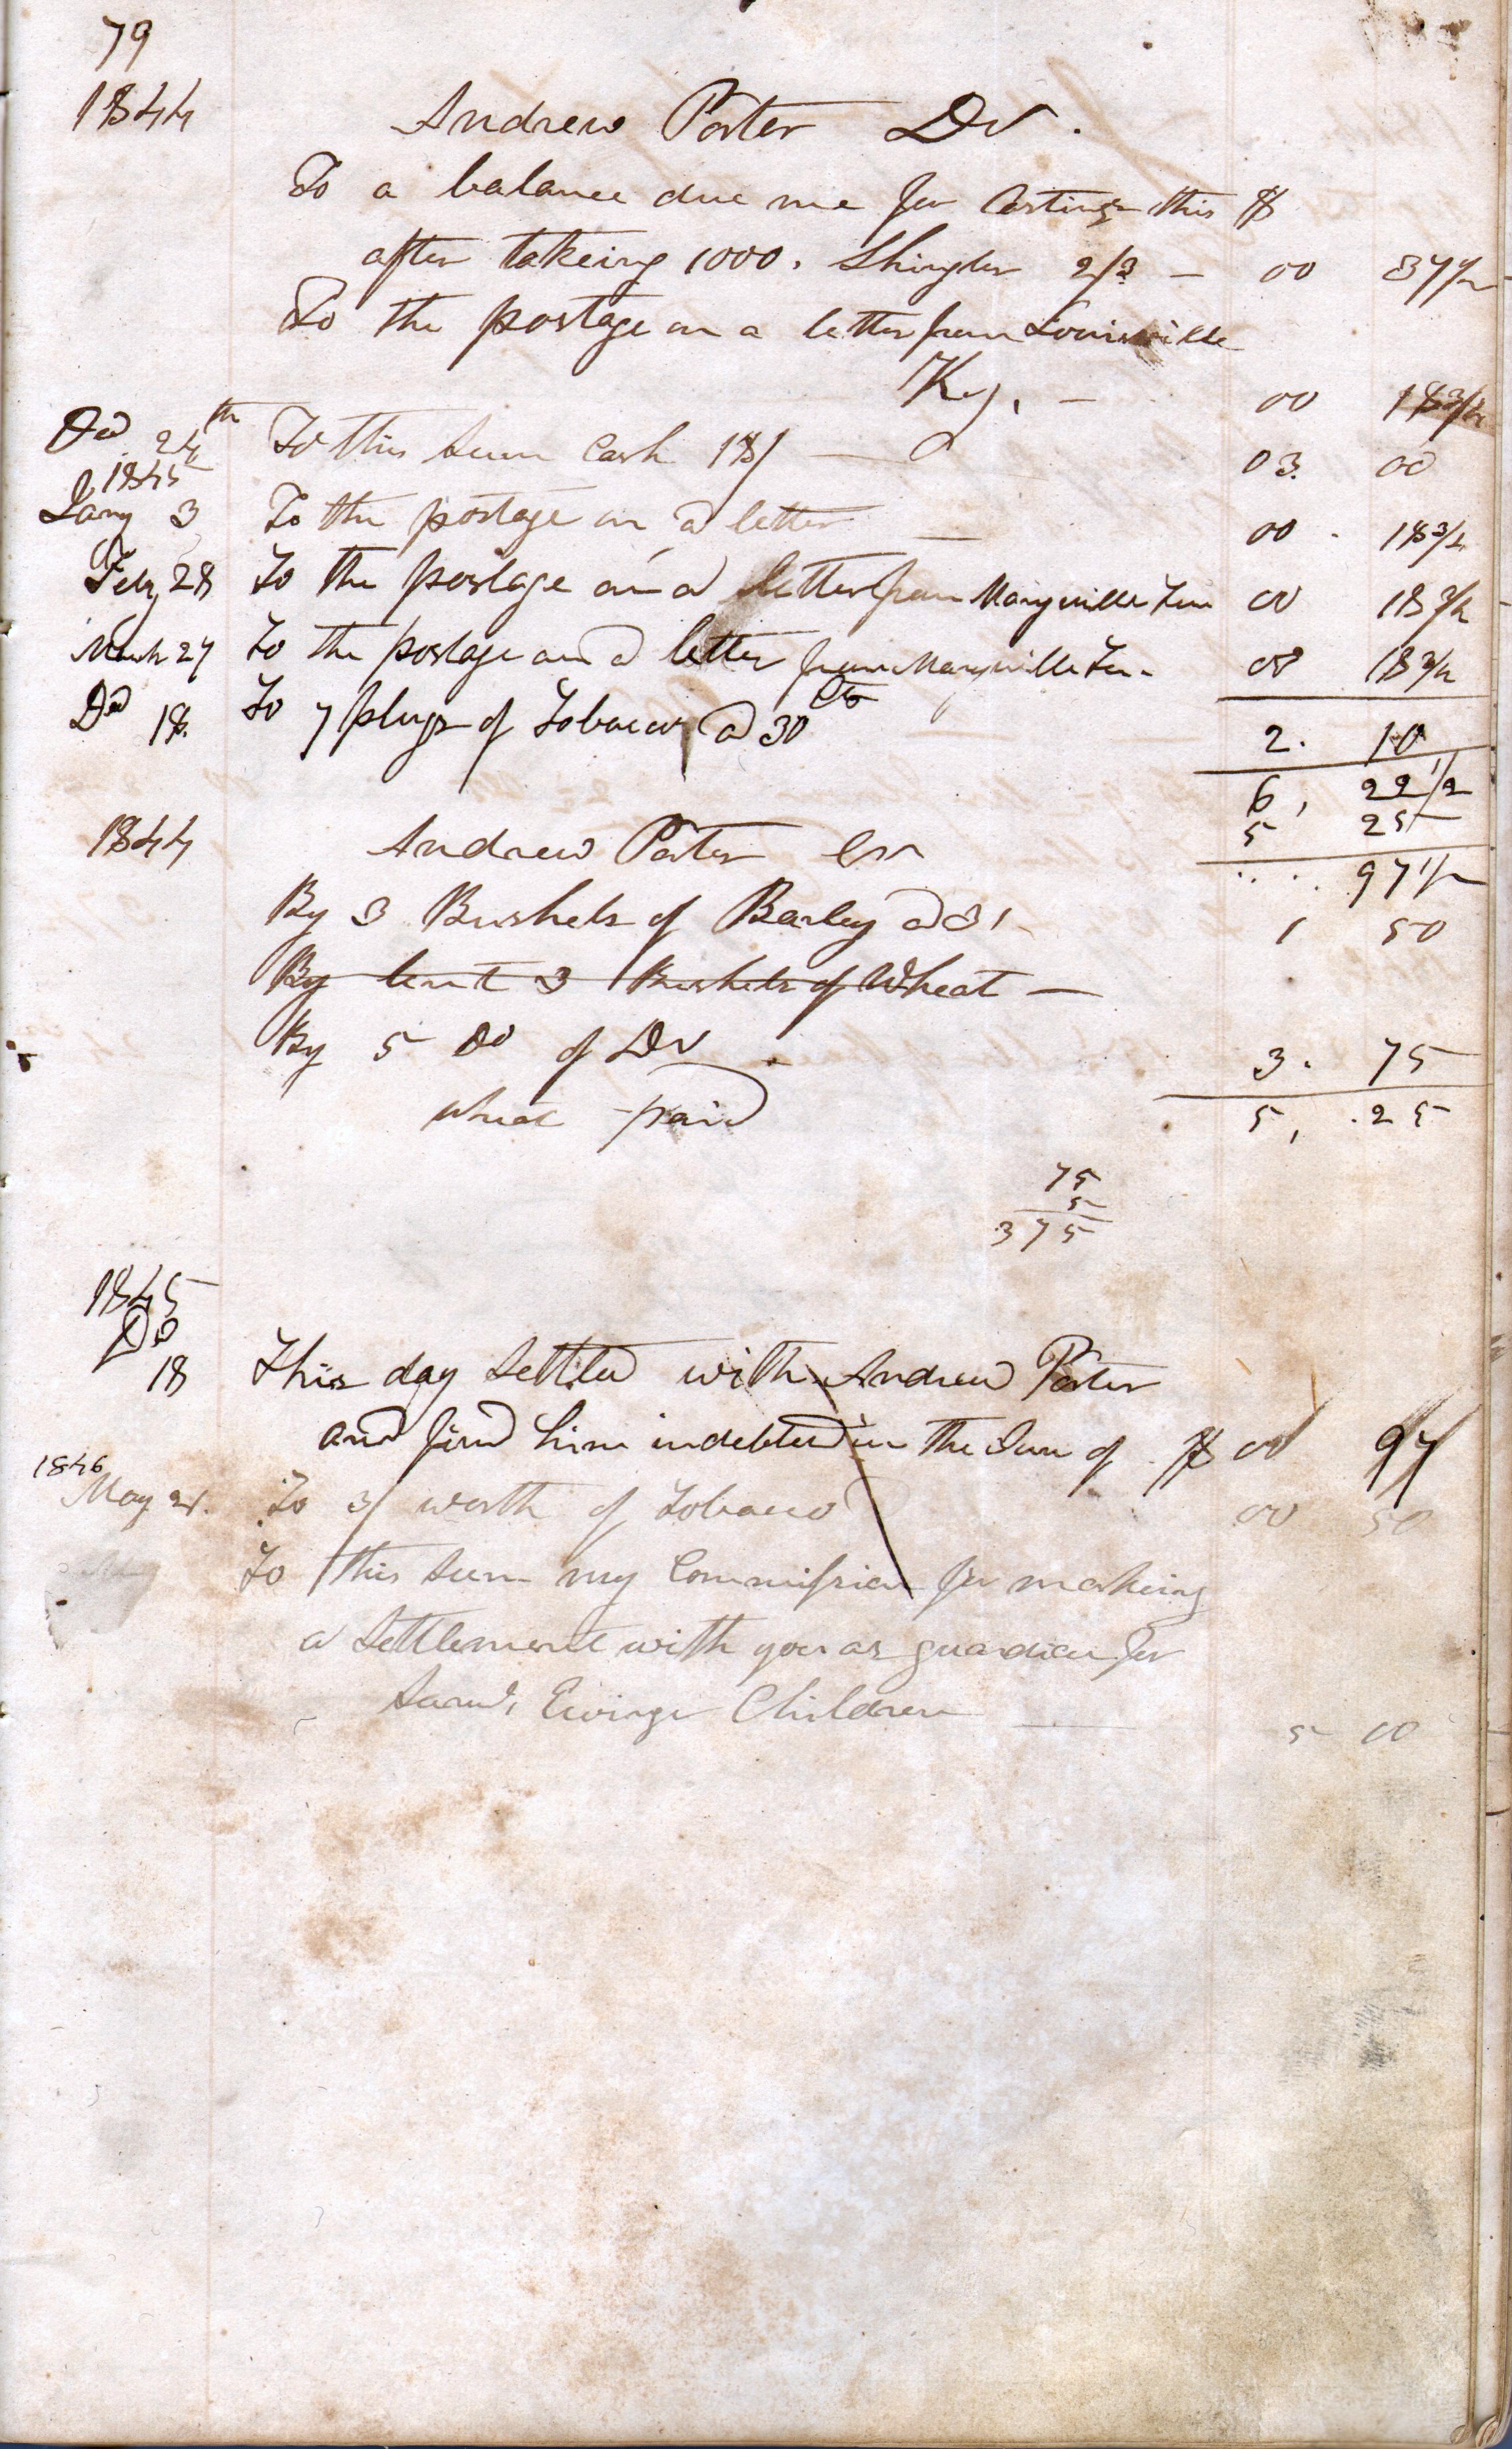 79
1844 Andrew Porter Dr.
To a balance due me for Castings this $
after takeing 1000. Shingles 2/3 — 00 37½
To the postage on a letter from Louisville
Ky. — 00 18¾
24th To this Sum Cash 18/ — 03. 00
1845
Jany 3 To the postage on a letter — 00 18¾
Feby 28 To the postage on a letter from Maryville Ten 00 18¾
March 27 To the postage on a letter from Maryville Ten. 00 18¾
18. To 7 plugs of Tobacco @ 30 cts 2. 10
6, 22 1/2
5 25
1844 Andrew Porter Cr
97½
By 3 Bushels of Barley @ 3/ 1 50
By lent 3 Bushels of Wheat —
By 5 Do of Do 3. 75
wheat paid 5, 25
75
5
375
1845
18 This day Settled with Andrew Porter
and find him indebted in the Sum of $ 00 97
1846
May To 3/ worth of Tobacco 00 50
To this Sum my Commission for makeing
a Settlement with you as guardian for
Saml. Ewings Children — 5 00